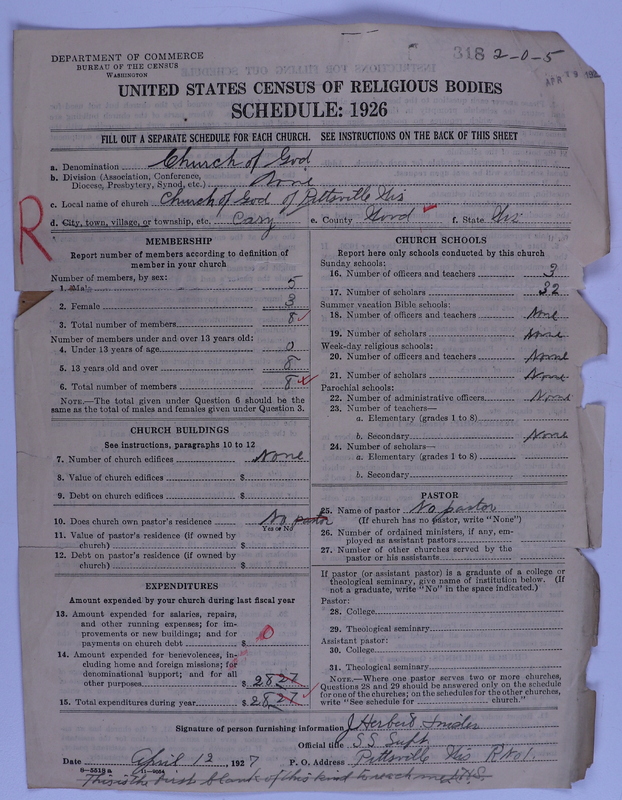 318 2-0-5
APR 19 192
DEPARTMENT OF COMMERCE
BUREAU OF THE CENSUS
WASHINGTON
UNITED STATES CENSUS OF RELIGIOUS BODIES
SCHEDULE: 1926
FILL OUT A SEPARATE SCHEDULE FOR EACH CHURCH. SEE INSTRUCTIONS ON THE BACK OF THIS SHEET
a. Denomination Church of God
b. Division (Association, Conference,
Diocese, Presbytery, Synod, etc.) None
c. Local name of church Church of God of Pittsville Wis
d. City, town, village, or township, etc. Cary e. County Wood f. State Wis
R
MEMBERSHIP
Report number of members according to definition of
member in your church
Number of members, by sex:
1. Male 5
2. Female 3
3. Total number of members 8
Number of members under and over 13 years old:
4. Under 13 years of age 0
5. 13 years old and over 8
6. Total number of members 8
NOTE.—The total given under Question 6 should be
same as the total of males and females given under Question 3.
CHURCH BUILDINGS
See instructions, paragraphs 10 to 12
7. Number of church edifices None
8. Value of church edifices $
9. Debt on church edifices $
10. Does church own pastor's residence No pastor
Yes or No
11. Value of pastor's residence (if owned by
church) $
12. Debt on pastor's residence (if owned by
church) $
EXPENDITURES
Amount expended by your church during last fiscal year
13. Amount expended for salaries, repairs,
and other running expenses; for im-
provements or new buildings; and for
payments on church debt $ 0
14. Amount expended for benevolences, in-
cluding home and foreign missions; for
denominational support; and for all
other purposes $ 28 27
15. Total expenditures during year $ 28 27
CHURCH SCHOOLS
Report here only schools conducted by this church
Sunday schools:
16. Number of officers and teachers 3
17. Number of scholars 32
Summer vacation Bible schools:
18. Number of officers and teachers None
19. Number of scholars None
Week-day religious schools:
20. Number of officers and teachers None
21. Number of scholars None
Parochial schools:
22. Number of administrative officers None
23. Number of teachers—
a. Elementary (grades 1 to 8)
b. Secondary None
24. Number of scholars—
a. Elementary (grades 1 to 8)
b. Secondary
PASTOR
25. Name of pastor No pastor
(If church has no pastor, write "None")
26. Number of ordained ministers, if any, em-
ployed as assistant pastors
27. Number of other churches served by the
pastor or his assistants
If pastor (or assistant pastor) is a graduate of a college or
theological seminary, give name of institution below. (If
not a graduate, write "No" in the space indicated.)
Pastor:
28. College
29. Theological seminary
Assistant pastor:
30. College
31. Theological seminary
NOTE.—Where one pastor serves two or more churches,
Questions 28 and 29 should be answered only on the schedule
for one of the churches; on the schedules for the other churches,
write "See schedule for church."
Signature of person furnishing information J Herbert
Official title S.S. Supt
Date April 12, 1927 P. O. Address Pittsville Wis R No 1.
8-5518 a 11-9064
This is the first blank of this kind to reach me